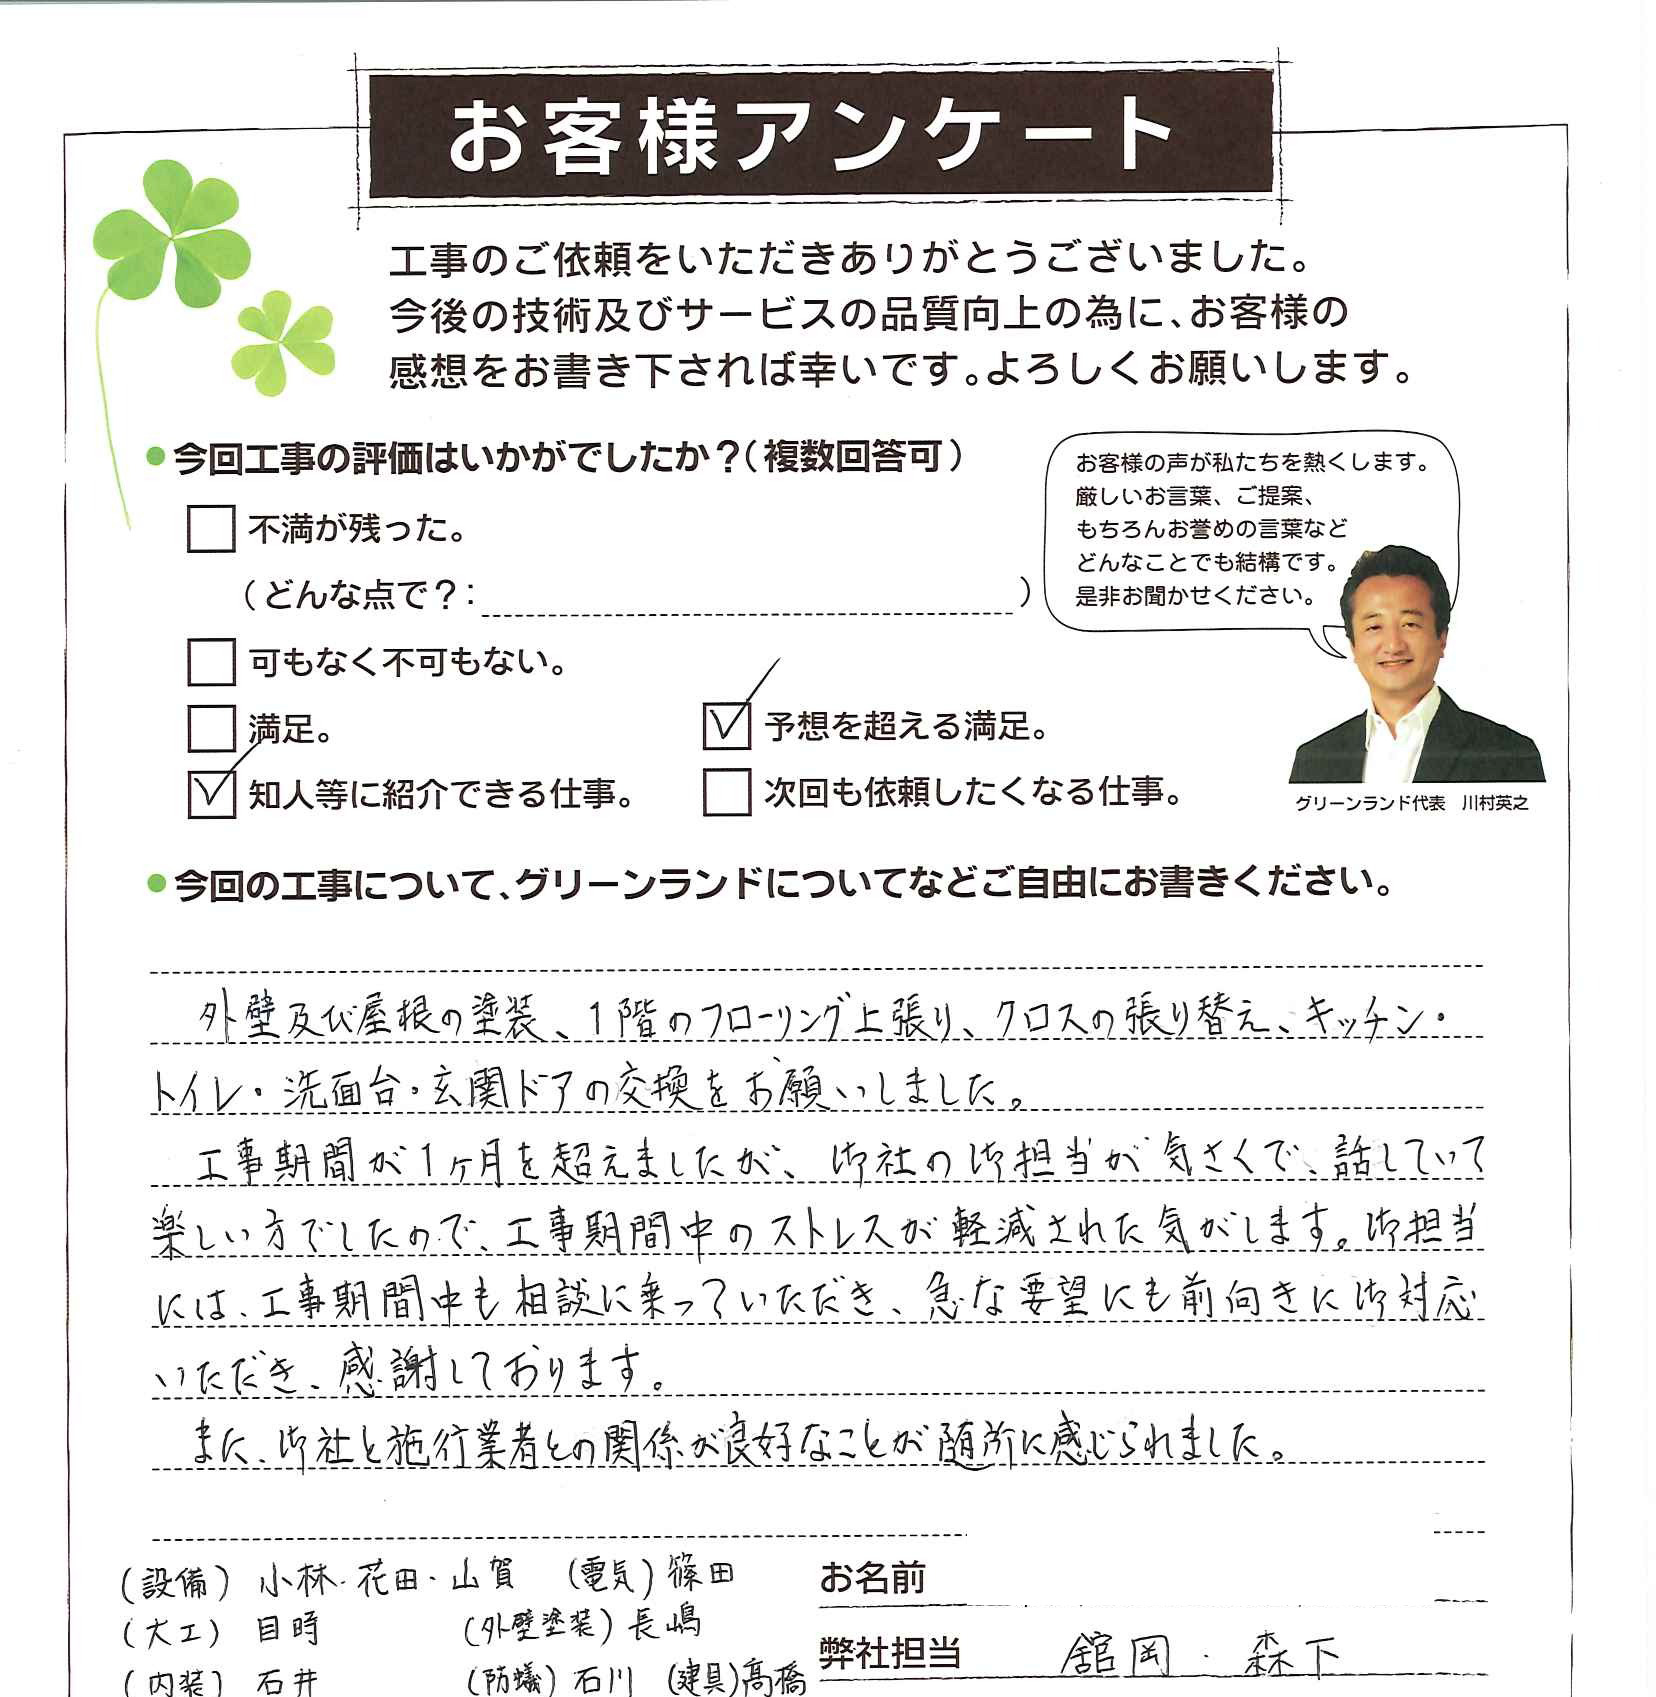 お客様アンケート
工事のご依頼をいただきありがとうございました。
今後の技術及びサービスの品質向上の為に、お客様の
感想をお書き下されば幸いです。よろしくお願いします。
●今回工事の評価はいかがでしたか？（複数回答可）
不満が残った。
（どんな点で？：　　　）
可もなく不可もない。
満足。
予想を超える満足。
知人等に紹介できる仕事。
次回も依頼したくなる仕事。
お客様の声が私たちを熱くします。
厳しいお言葉、ご提案、
もちろんお誉めの言葉など
どんなことでも結構です。
是非お聞かせください。
グリーンランド代表　川村英之
●今回の工事について、グリーンランドについてなどご自由にお書きください。
外壁及び屋根の塗装、1階のフローリング上張り、クロスの張り替え、キッチン・
トイレ・洗面台・玄関ドアの交換をお願いしました。
工事期間が1ヶ月を超えましたが、御社の御担当が気さくで、話していて
楽しい方でしたので、工事期間中のストレスが軽減された気がします。御担当
には、工事期間中も相談に乗っていただき、急な要望にも前向きに御対応
いただき、感謝しております。
また、御社と施行業者との関係が良好なことが随所に感じられました。
（設備）小林・花田・山賀　（電気）篠田
（大工）目時　（外壁塗装）長嶋
（内装）石井　（防蟻）石川　（建具）高橋
お名前
弊社担当　舘岡・森下